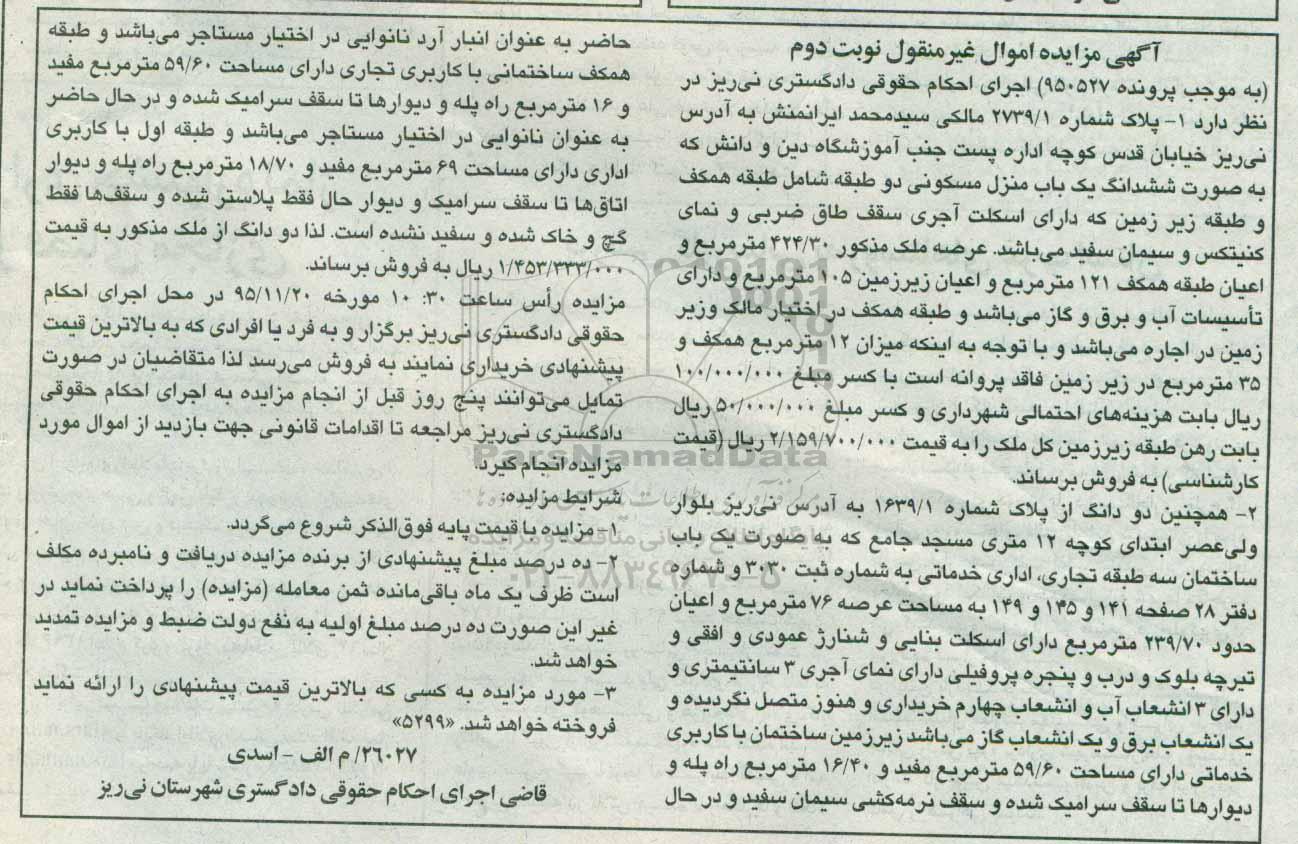 آگهی مزایده اموال غیرمنقول نوبت دوم
(به موجب پرونده ۹۵۰۵۲۷) اجرای احکام حقوقی دادگستری نی‌ریز در
نظر دارد ۱- پلاک شماره ۲۷۳۹/۱ مالکی سیدمحمد ایرانمنش به آدرس
نی‌ریز خیابان قدس کوچه اداره پست جنب آموزشگاه دین و دانش که
به صورت ششدانگ یک باب منزل مسکونی دو طبقه شامل طبقه همکف
و طبقه زیر زمین که دارای اسکلت آجری سقف طاق ضربی و نمای
کنیتکس و سیمان سفید می‌باشد. عرصه ملک مذکور ۴۲۴/۳۰ مترمربع و
اعیان طبقه همکف ۱۲۱ مترمربع و اعیان زیرزمین ۱۰۵ مترمربع و دارای
تأسیسات آب و برق و گاز می‌باشد و طبقه همکف در اختیار مالک وزیر
زمین در اجاره می‌باشد و با توجه به اینکه میزان ۱۲ مترمربع همکف و
۳۵ مترمربع در زیر زمین فاقد پروانه است با کسر مبلغ ۱۰۰/۰۰۰/۰۰۰
ریال بابت هزینه‌های احتمالی شهرداری و کسر مبلغ ۵۰/۰۰۰/۰۰۰ ریال
بابت رهن طبقه زیرزمین کل ملک را به قیمت ۲/۱۵۹/۷۰۰/۰۰۰ ریال (قیمت
کارشناسی) به فروش برساند.
۲- همچنین دو دانگ از پلاک شماره ۱۶۳۹/۱ به آدرس نی‌ریز بلوار
ولی‌عصر ابتدای کوچه ۱۲ متری مسجد جامع که به صورت یک باب
ساختمان سه طبقه تجاری، اداری خدماتی به شماره ثبت ۳۰۳۰ و شماره
دفتر ۲۸ صفحه ۱۴۱ و ۱۴۵ و ۱۴۹ به مساحت عرصه ۷۶ مترمربع و اعیان
حدود ۲۳۹/۷۰ مترمربع دارای اسکلت بنایی و شنارژ عمودی و افقی و
تیرچه بلوک و درب و پنجره پروفیلی دارای نمای آجری ۳ سانتیمتری و
دارای ۳ انشعاب آب و انشعاب چهارم خریداری و هنوز متصل نگردیده و
یک انشعاب برق و یک انشعاب گاز می‌باشد زیرزمین ساختمان با کاربری
خدماتی دارای مساحت ۵۹/۶۰ مترمربع مفید و ۱۶/۴۰ مترمربع راه پله و
دیوارها تا سقف سرامیک شده و سقف نرمه‌کشی سیمان سفید و در حال
حاضر به عنوان انبار آرد نانوایی در اختیار مستاجر می‌باشد و طبقه
همکف ساختمانی با کاربری تجاری دارای مساحت ۵۹/۶۰ مترمربع مفید
و ۱۶ مترمربع راه پله و دیوارها تا سقف سرامیک شده و در حال حاضر
به عنوان نانوایی در اختیار مستاجر می‌باشد و طبقه اول با کاربری
اداری دارای مساحت ۶۹ مترمربع مفید و ۱۸/۷۰ مترمربع راه پله و دیوار
اتاق‌ها تا سقف سرامیک و دیوار حال فقط پلاستر شده و سقف‌ها فقط
گچ و خاک شده و سفید نشده است. لذا دو دانگ از ملک مذکور به قیمت
۱/۴۵۳/۳۳۳/۰۰۰ ریال به فروش برساند.
مزایده رأس ساعت ۳۰: ۱۰ مورخه ۹۵/۱۱/۲۰ در محل اجرای احکام
حقوقی دادگستری نی‌ریز برگزار و به فرد یا افرادی که به بالاترین قیمت
پیشنهادی خریداری نمایند به فروش می‌رسد لذا متقاضیان در صورت
تمایل می‌توانند پنج روز قبل از انجام مزایده به اجرای احکام حقوقی
دادگستری نی‌ریز مراجعه تا اقدامات قانونی جهت بازدید از اموال مورد
مزایده انجام گیرد.
شرایط مزایده:
۱- مزایده با قیمت پایه فوق‌الذکر شروع می‌گردد.
۲- ده درصد مبلغ پیشنهادی از برنده مزایده دریافت و نامبرده مکلف
است ظرف یک ماه باقی‌مانده ثمن معامله (مزایده) را پرداخت نماید در
غیر این صورت ده درصد مبلغ اولیه به نفع دولت ضبط و مزایده تمدید
خواهد شد.
۳- مورد مزایده به کسی که بالاترین قیمت پیشنهادی را ارائه نماید
فروخته خواهد شد. «۵۲۹۹»
۲۶۰۲۷/ م الف - اسدی
قاضی اجرای احکام حقوقی دادگستری شهرستان نی‌ریز
ParsNamadData